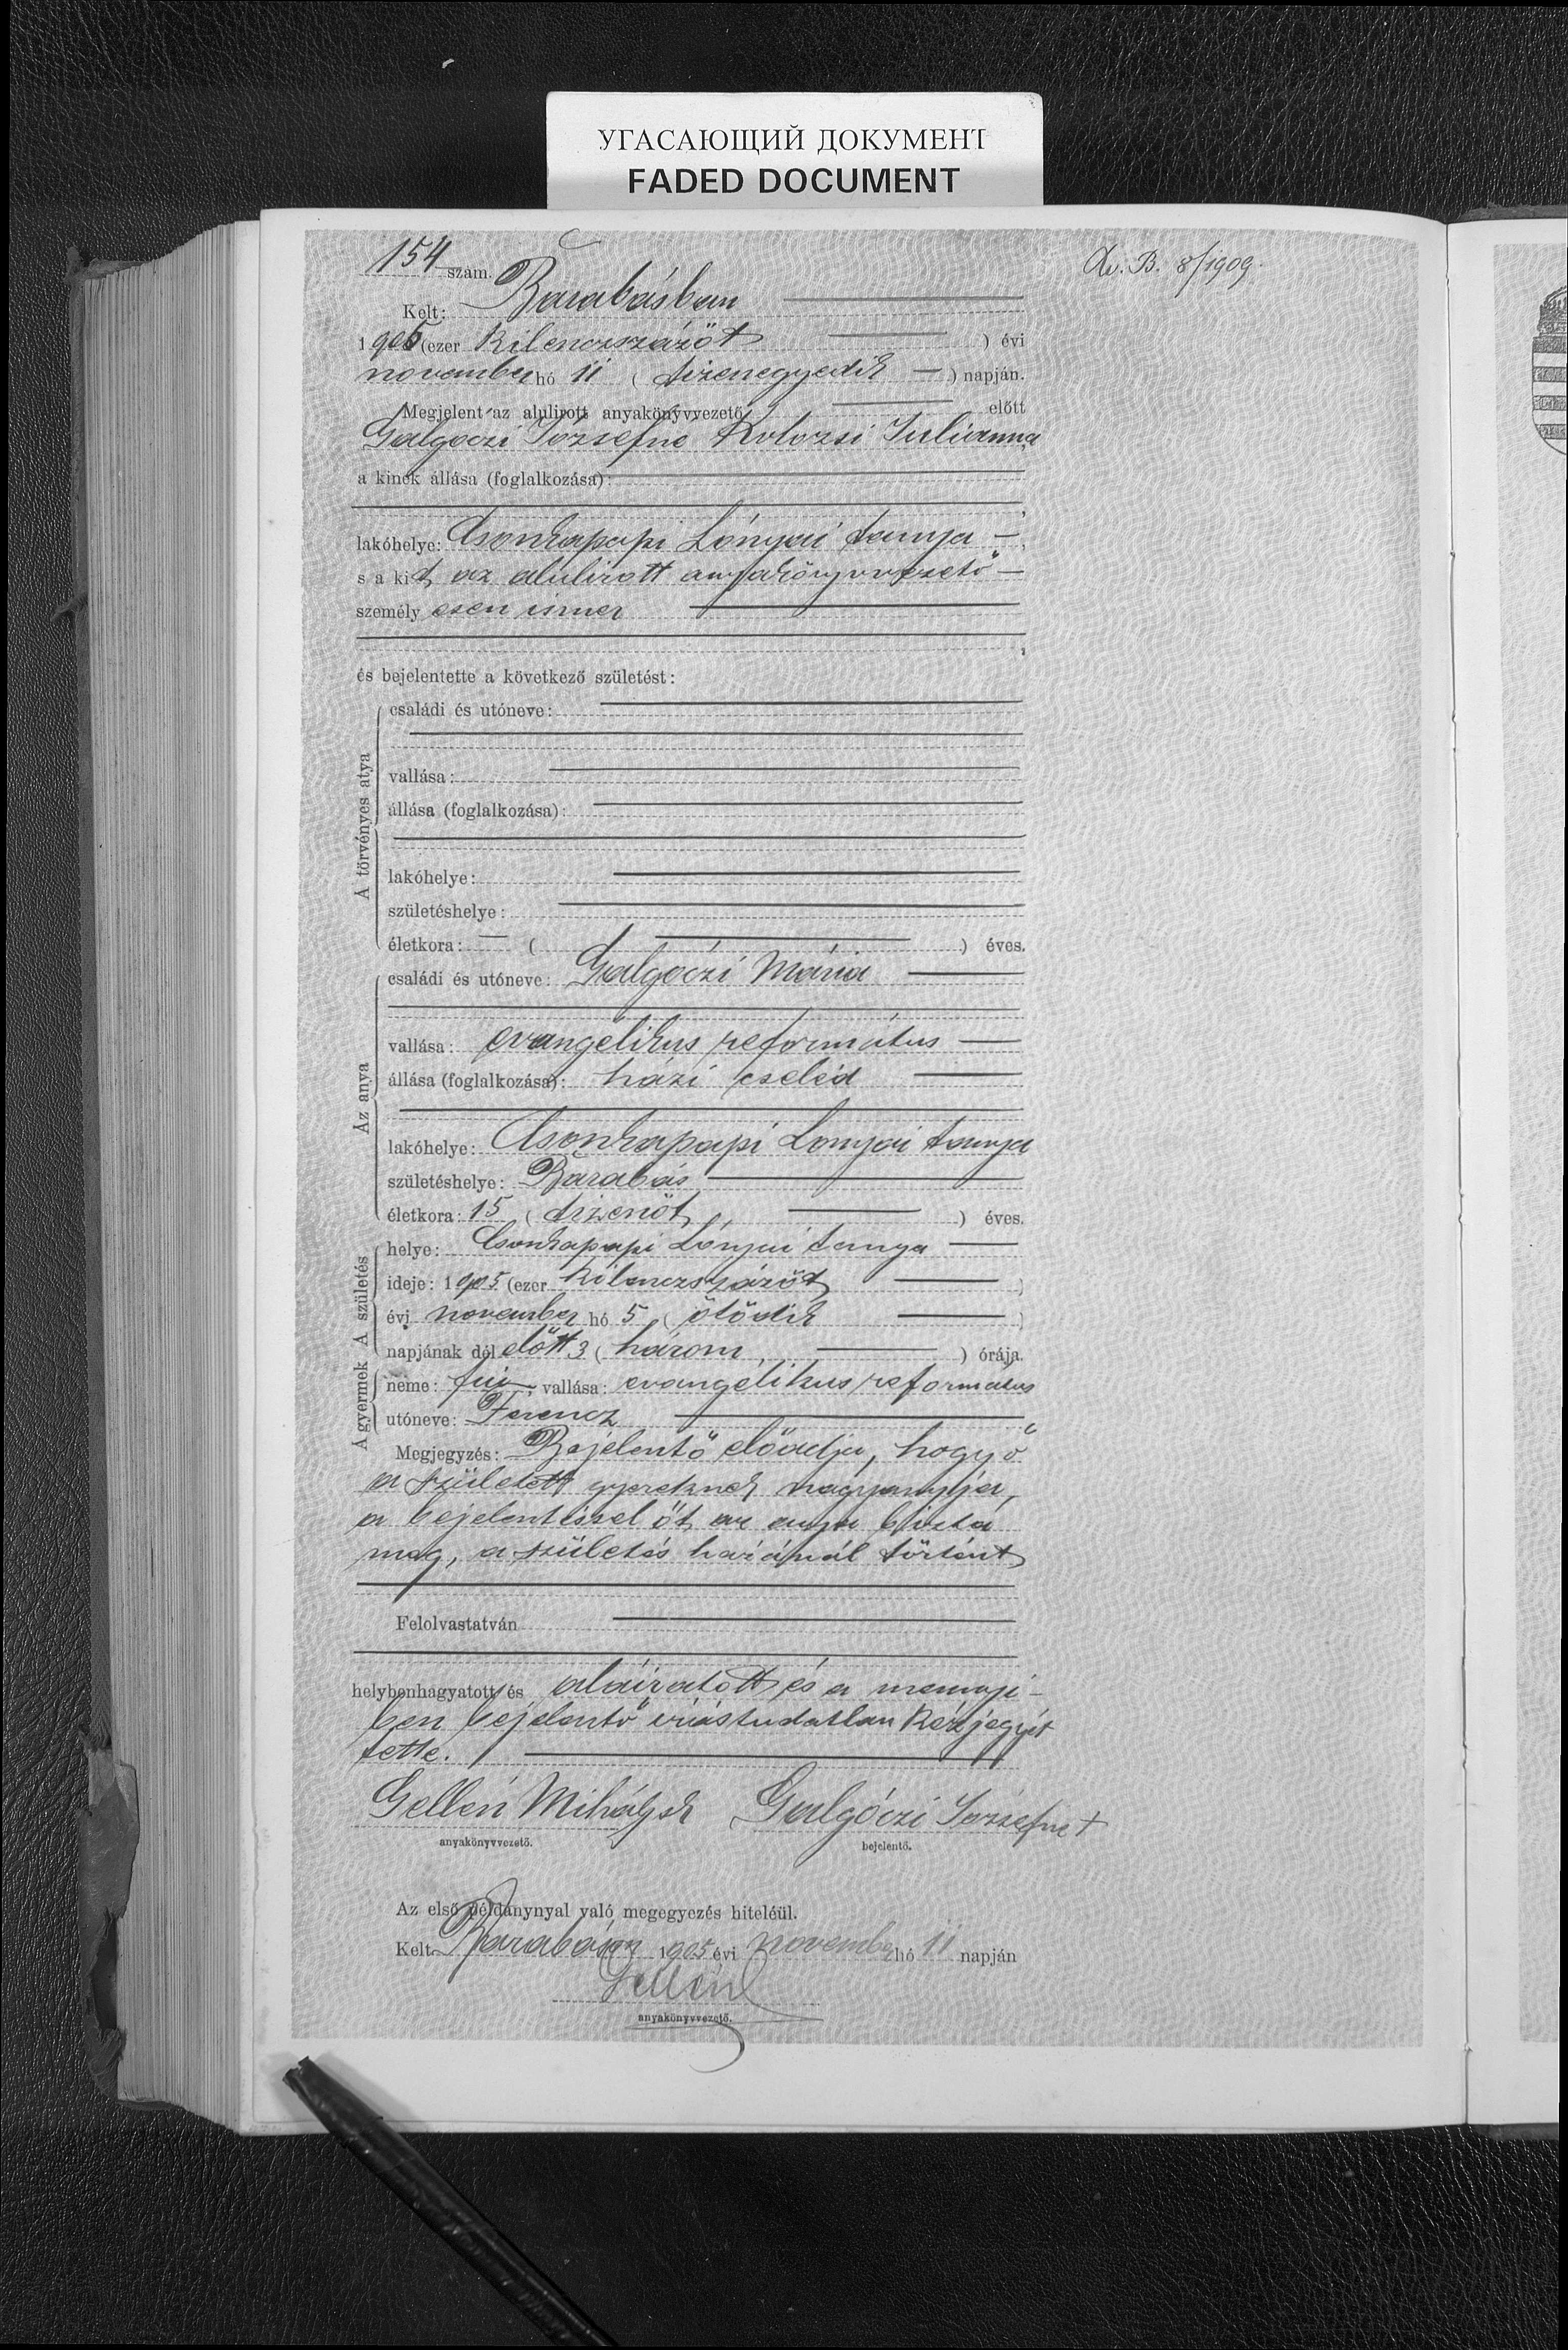 УГАСАЮЩИЙ ДОКУМЕНТ
FADED DOCUMENT
154 szám.
Av. B. 8/1909.
Kelt: Barabásban
1905 (ezer kilenczszázöt ) évi
november hó 11 ( tizenegyedik ) napján.
Megjelent az alulirott anyakönyvvezető előtt
Galgoczi Józsefné Kolozsi Juliánna
a kinek állása (foglalkozása):
lakóhelye: Csonkapapi Lónyai tanya
s a kit az alulirott anyakönyvvezető
személy esen ismer
és bejelentette a következő születést:
A törvényes atya
családi és utóneve:
vallása:
állása (foglalkozása):
lakóhelye:
születéshelye:
életkora: ( ) éves.
Az anya
családi és utóneve: Galgóczi Mária
vallása: evangélikus református
állása (foglalkozása): házi cseléd
lakóhelye: Csonkapapi Lonyai tanya
születéshelye: Barabás
életkora: 15 ( tizenöt ) éves.
A születés
helye: Csonkapapi Lónyai tanya
ideje: 1905 (ezer kilenczszázöt )
évi november hó 5 ( ötödik )
napjának dél előtt 3 ( három ) órája.
A gyermek
neme: fiu, vallása: evangélikus református
utóneve: Ferencz
Megjegyzés: Bejelentő előadja, hogy ő
a született gyereknek nagyanyja,
a bejelentéssel őt az anya bizta
meg, a születés házánál történt
Felolvastatván
helybenhagyatott és aláiratott és a mennyi-
ben bejelentő irástudatlan kézjegyét
tette.
Gellén Mihály sk Galgóczi Józsefné +
anyakönyvvezető. bejelentő.
Az első példánynyal való megegyezés hiteléül.
Kelt Barabáson 1905 évi november hó 11 napján
Gellén
anyakönyvvezető.